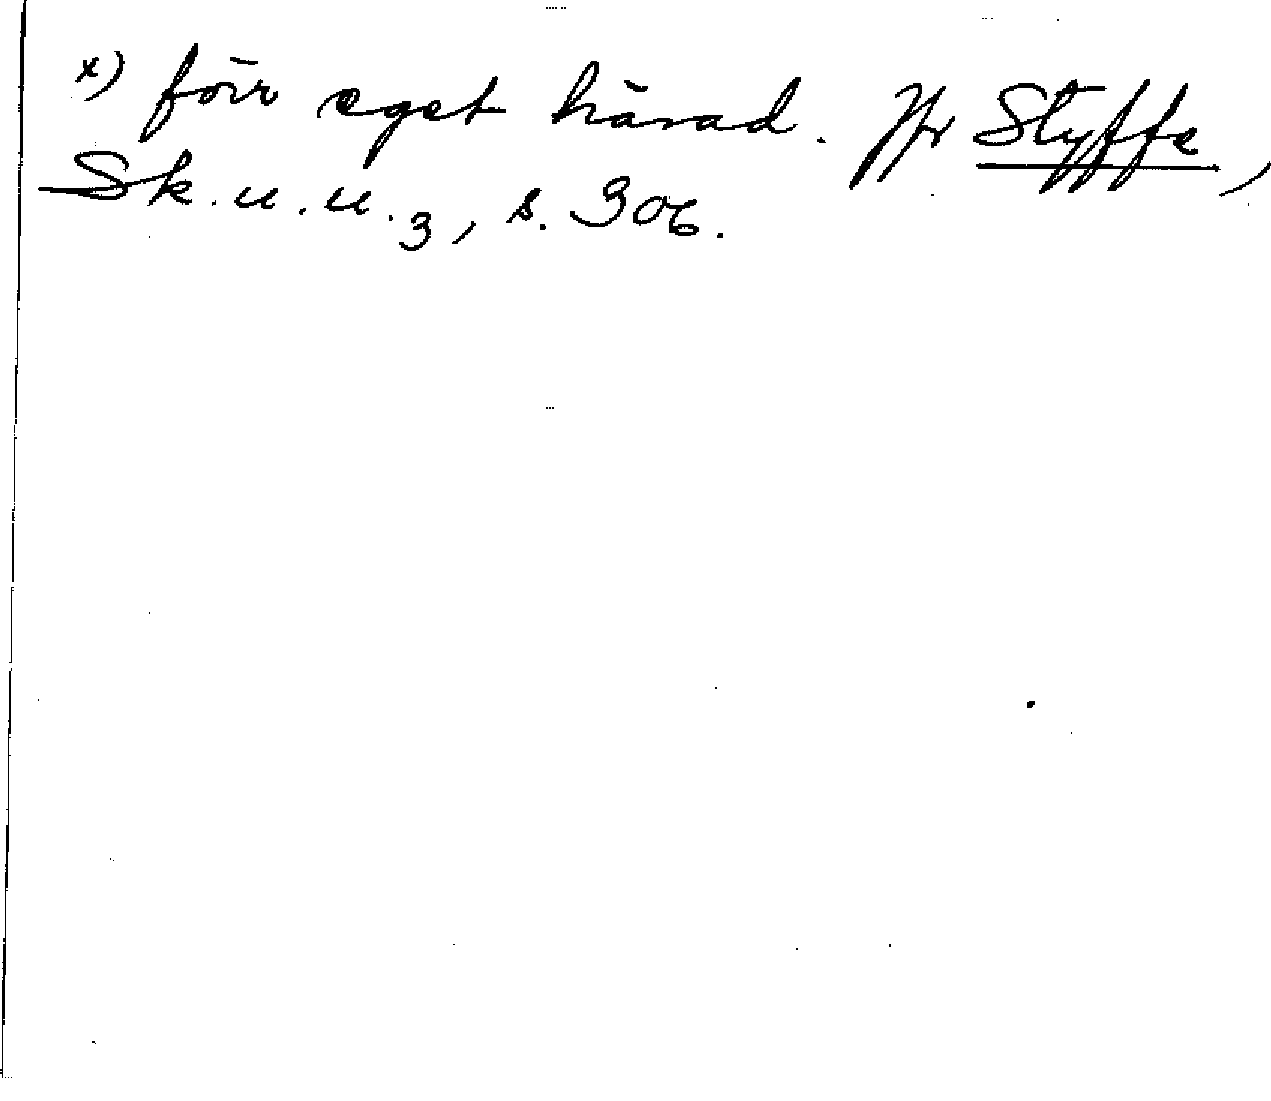 x) förr eget härad. Jfr Styffe,
Sk. u. u. 3, s. 306.